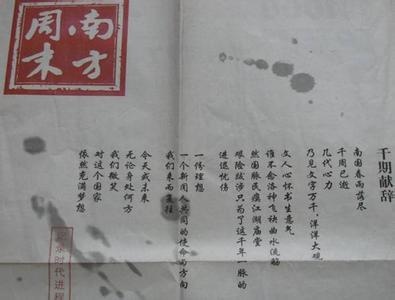 南方
周末
千期献辞
南国春雨落尽
千周已逝
几代心力
乃见文字万千，洋洋大观
文人心怀书生意气
谁不念洛神飞袂曲水流觞
然国脉民瘼江湖庙堂
艰险跋涉只为了这千年一脉的
进退忧伤
一份理想
一个新闻人共同的使命与方向
我们来而复往
今天或未来
无论身处何方
我们微笑
对这个国家
依然充满梦想
记录时代进程